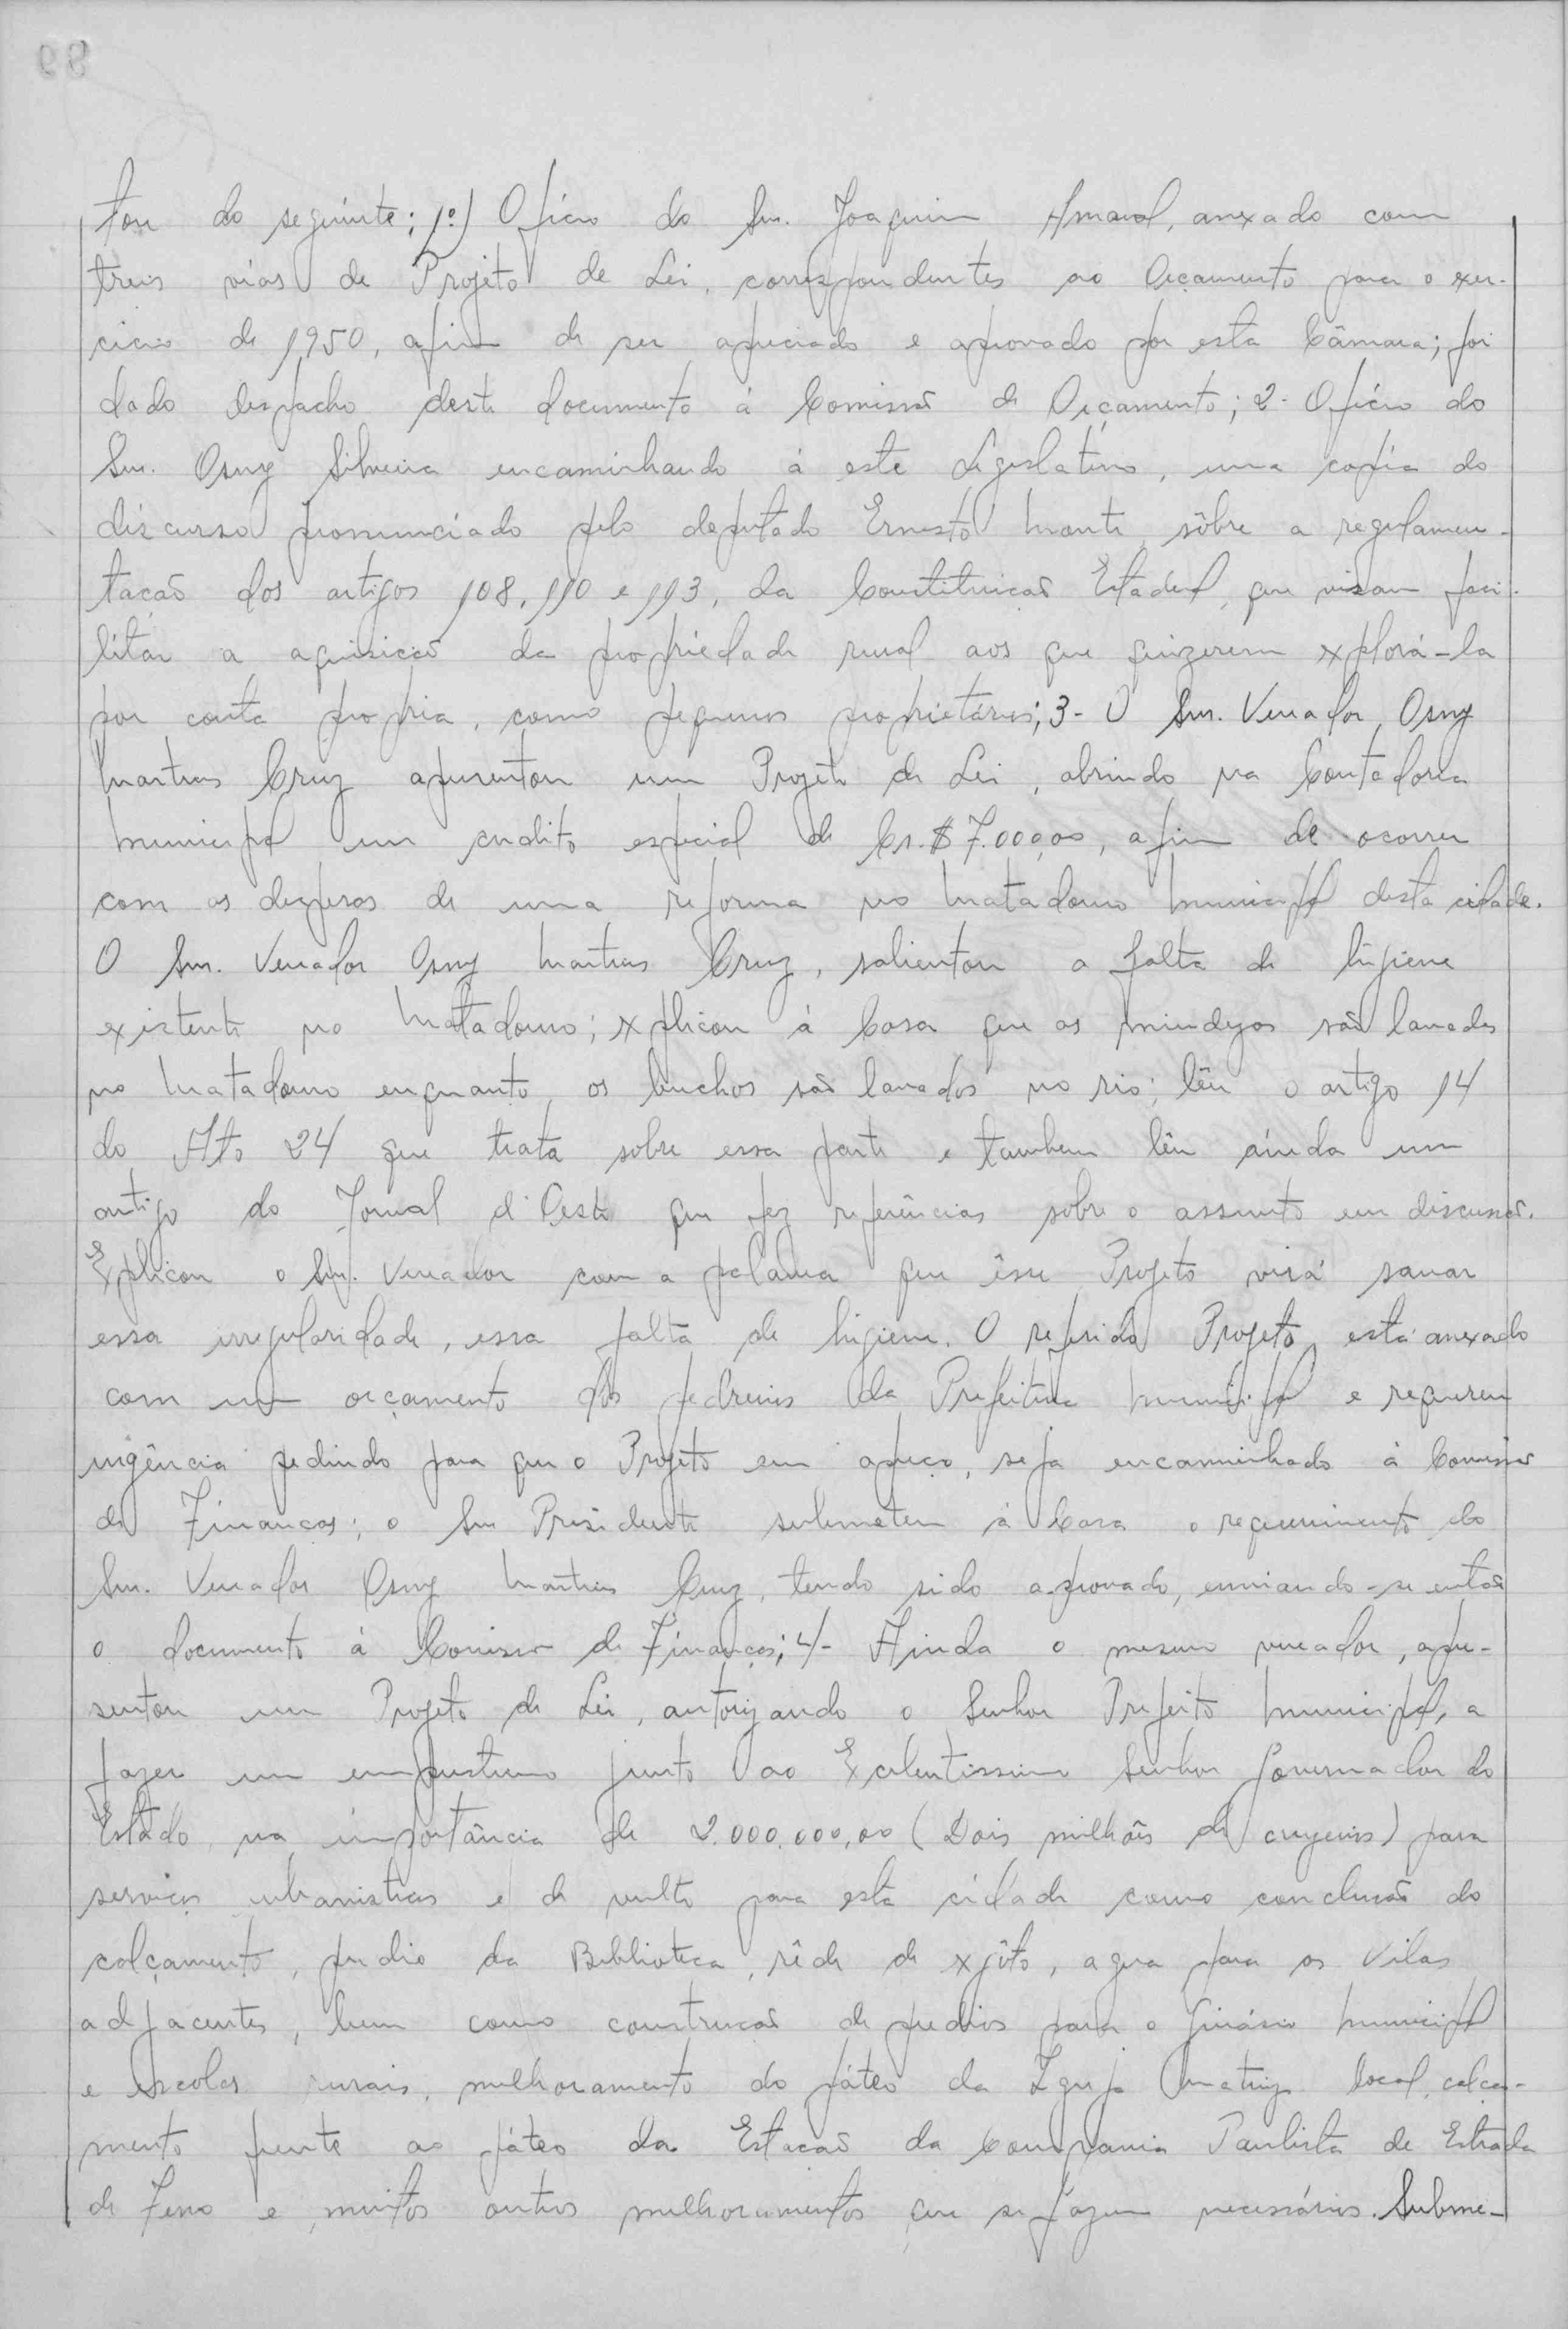 tou do seguinte; 1º) Oficio do Snr. Joaquim Amaral, anexado com
treis vias de Projeto de Lei, correspondentes ao Orçamento para o exer-
cicio de 1950, afim de ser apreciado e aprovado por esta Câmara; foi
dado despacho deste documento á Comissão de Orçamento; 2- Oficio do
Snr. Osny Silveira encaminhando á este Legislativo, uma copia do
discurso pronunciado pelo deputado Ernesto Monte, sôbre a regulamen-
tacão dos artigos 108, 110 e 113, da Constituicão Estadual, que visam faci-
litar a aquisicão da propriedade rural aos que quizerem explorá-la
por conta propria, como pequenos proprietários; 3- O Snr. Vereador, Osny
Martins Cruz apresentou um Projeto de Lei, abrindo na Contadoria
Municipal um credito especial de Cr.$ 7.000,00, afim de ocorrer
com as despesas de uma reforma no Matadouro Municipal desta cidade.
O Snr. Vereador Osny Martins Cruz, salientou a falta de higiene
existente no Matadouro; explicou á Casa que os miudezas são lavadas
no Matadouro enquanto, os buchos são lavados no rio; lêu o artigo 14
do Ato 24 que trata sobre essa parte e tambem lêu ainda um
artigo do Jornal d'Oeste que fez referências sobre o assunto em discussão.
Explicou o Snr. Vereador com a palavra que êsse Projeto virá sanar
essa irregularidade, essa falta de higiene. O referido Projeto, está anexado
com um orçamento dos pedreiros da Prefeitura Municipal e requereu
urgência pedindo para que o Projeto em apreço, seja encaminhado á Comissão
de Financas; o Snr Presidente submeteu á Casa o requerimento do
Snr. Vereador Osny Martins Cruz, tendo sido aprovado, enviando-se então
o documento á Comissão de Finanças; 4- Ainda o mesmo vereador, apre-
sentou um Projeto de Lei, autorizando o Senhor Prefeito Municipal, a
fazer um emprestimo junto ao Excelentissimo Senhor Governador do
Estado, na importância de 2.000.000,00 (Dois milhões de cruzeiros) para
serviços urbanisticos e de vulto para esta cidade como conclusão do
calçamento, predio da Biblioteca, rêde de exgôto, agua para as Vilas
adjacentes, bem como construcão de predios para o Ginásio Municipal
e escolas rurais, melhoramento do páteo da Igreja Matriz local, calça-
mento frente ao páteo da Estacão da Companhia Paulista de Estrada
de Ferro e muitos outros melhoramentos que se fazem necessários. Subme-